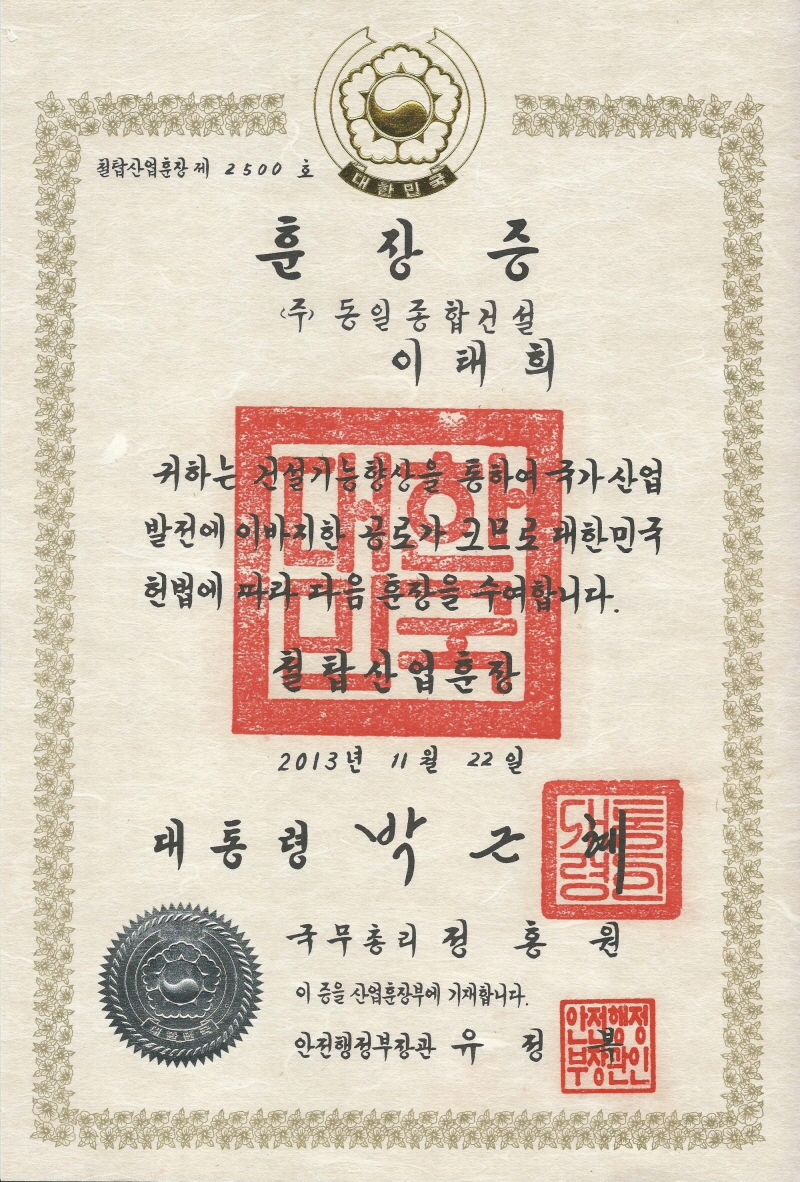 대한민국
철탑산업훈장 제 2500 호
훈장증
(주) 동일종합건설
이태희
귀하는 건설기능향상을 통하여 국가산업
발전에 이바지한 공로가 크므로 대한민국
헌법에 따라 다음 훈장을 수여합니다.
대한
민국
철탑산업훈장
2013년 11월 22일
대통령 박근혜
대통
령인
국무총리 정홍원
이 증을 산업훈장부에 기재합니다.
안전행정부장관 유정복
안전행정
부장관인
대한민국